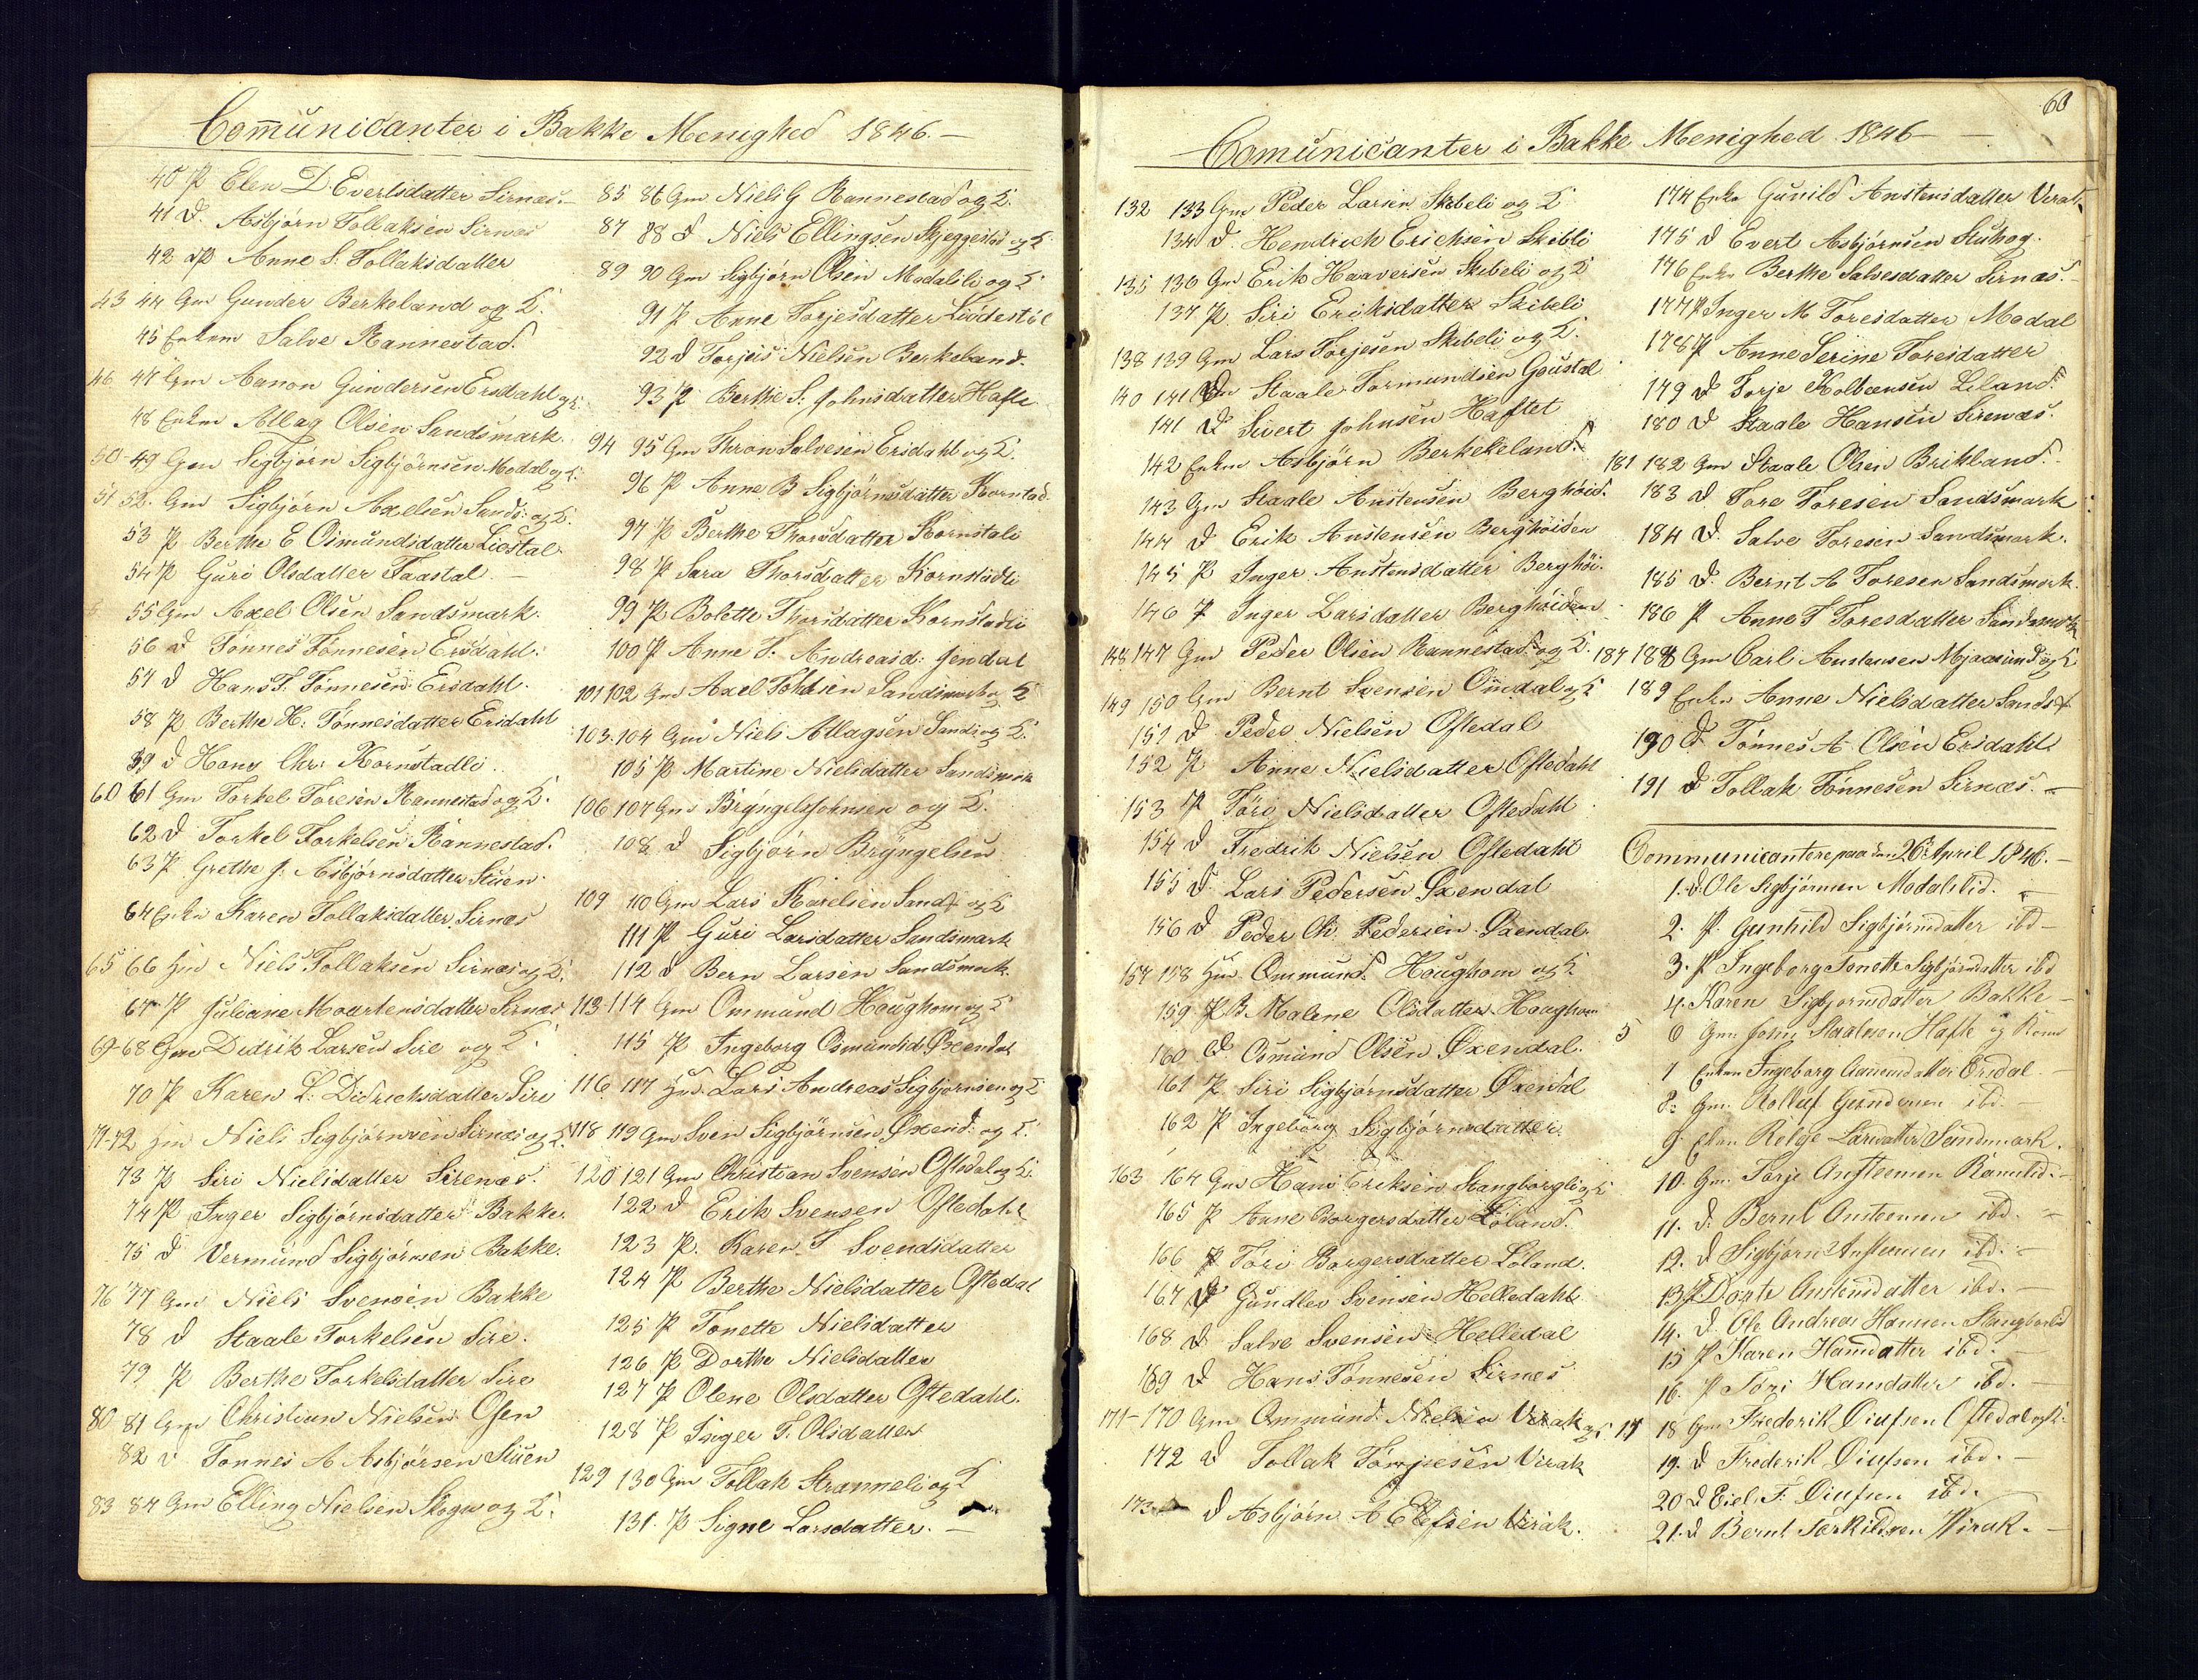 Com̅unicanter i Bakke Menighed 1846.—
40 P Elen D. Evertsdatter Sirnæs.—
41 D. Asbjørn Tollaksen Sirnæs
42 P Anne S. Tollaksdatter
43 44 Gm Gunder Berkeland og K.
45 Enkem Salve Rannestad.
46 47 Gm Aanon Gundersen Ersdahl og K.
48 Enkm Allag Olsen Sandsmark.
50-49 Gm Sigbjørn Sigbjørnsen Modal og K.
51 52. Gm Sigbjørn Axelsen Sands: og K.
53 P Berthe E Osmundsdatter Liestal.
54 P Guri Olsdatter Faastal.—
55 Gm Axel Olsen Sandsmark.
56 D Tønnes Tønnesen Ersdahl.
57 D Hans T. Tønnesen Ersdahl.
58 P Berthe H: Tønnesdatter Ersdahl
59 D Hans Chr: Kornstadli.
60 61 Gm Torkel Toresen Rannestad og K.
62 D Torkel Torkelsen Rannestad.
63 P Grethe J. Asbjørnsdatter Stuen.
64 Enke Karen Tollaksdatter Sirnæs
65 66 Gm Niels Tollaksen Sirnæs og K.
67 P Juliane Maartensdatter Sirnæs
69-68 Gm Didrik Larsen Sire og K.
70 P Karen L. Didrichsdatter Sire
71-72 Gm Niels Sigbjørnsen Sirnæs og K.
73 P Siri Nielsdatter Sirenæs.
74 P Inger Sigbjørnsdatter Bakke.
75 D Vermund Sigbjørnsen Bakke.
76 77 Gm Niels Svensen Bakke
78 D Staale Torkelsen Sire.
79 P Berthe Torkelsdatter Sire
80 81 Gm Christian Nielsen Osen
82 D Tønnes A Asbjørsen Stuen
83 84 Gm Elling Nielsen Skogen og K.
85 86 Gm Niels G Rannestad og K.
87 88 D Niels Ellingsen Skjeggestad og K
89 90 Gm Sigbjørn Olsen Modalsli og K
91 P Anne Torjesdatter Liødestøl
92 D Torjeis Nielsen Berkeland.
93 P Berthe S. Johnsdatter Hafte
94 95 Gm Thron Salvesen Ersdahl og K.
96 P Anne B Sigbjørnsdatter Kornstad.
97 P Berthe Thorsdatter Kornstali
98 P Sara Thorsdatter Kornstadli
99 P Bolette Thorsdatter Kornstadli
100 P Anne T. Andreasd: Jendal
101 102 Gm Axel Sandsmark og K
103. 104 Gm Niels Allagsen Sands og K.
105 P Martine Nielsdatter Sandsmark
106 107 Gm Bryngel Johnsen og K.
108 D Sigbjørn Bryngelsen
109 110 Gm Lars Karelsen Sands og K
111 P Guri Larsdatter Sandsmark
112 D Bern Larsen Sandsmark.
113-114 Gm Ommund Houghom og K
115 P Ingeborg Osmundsd Øxendal
116 117 Gm Lars Andreas Sigbjørnsen og K
118 119 Gm Sven Sigbjørnsen Øxend: og K.
120 121 Gm Christian Svensen Oftedal og K.
122 D Erik Svensen Oftedahl
123 P. Karen T Svendsdatter
124 P Berthe Nielsdatter Oftedal
125 P Tonette Nielsdatter
126 P Dorthe Nielsdatter
127 P Olene Olsdatter Oftedahl.
128 P Inger T. Olsdatter
129 130 Gm Tollak Stranneli og K
131. P Signe Larsdatter.—
60
Comunicanter i Bakke Menighed 1846—
132 133 Gm Peder Larsen Skibeli og K
134 D. Hendrich Erichsen Skibli
135 136 Gm Erik Haaversen Skibeli og K
137 P. Siri Eriksdatter Skibeli
138 139 Gm Lars Torjesen Skibeli og K.
140 141 Gm Staale Tormundsen Goustal
141 D Sivert Johnsen Haftet
142 Enkm Asbjørn Berkekeland.
143 Gm Staale Anstensen Berghøid.
144 D Erik Anstensen Berghøiden
145 P Inger Anstensdatter Berghøi.
146 P Inger Larsdatter Berghøiden
148 147 Gm Peder Olsen Rannestad og K.
149 150 Gm Bernt Svensen Omdal og K
151 D Peder Nielsen Oftedal
152 P Anne Nielsdatter Oftedahl
153 P Tøre Nielsdatter Oftedahl
154 D Fredrik Nielsen Oftedahl
155 D. Lars Pedersen Øxendal
156 D Peder Ch. Pedersen Øxendal.
157 158 Gm Ommund Houghom og K
159 P B. Malene Olsdatter Houghom
160 D Osmund Olsen Øxendal.
161 P. Siri Sigbjørnsdatter Øxendal
162 P Ingeborg Sigbjørnsdatter.
163 164 Gm Hans Eriksen Stangborgli og K
165 P Anne Borgersdatter Loland.
166 P Tøri Borgersdatter Loland.
167 D Gundlev Svensen Helledahl
168 D. Salve Svensen Helledal
169 D Hans Tønnesen Sirnes
171-170 Gm Ommund Nielsen Virak og K
172 D Tollak Virak
173 D Asbjørn A Virak.
174 Enke Gunild Anstensdatter Virak.
175 D Evert Asbjørnsen
176 Enke Berthe Salvesdatter Sirnæs.—
177 P Inger M Toresdatter Modal
178 P Anne Serine Toresdatter
179 D Torje Kolbensen Liland.
180 D Staale Hansen Sirenæs.
181 182 Gm Staale Olsen Brikland.
183 D Tore Toresen Sandsmark
184 D. Salve Toresen Sandsmark.
185 D. Bernt A Toresen Sandsmark.
186 P Anne T Toresdatter Sandsmark
187 188 Gm Carl Anstensen Mjaasund og K
189 Enke Anne Nielsdatter Sands
190 D Tønnes A Olsen Ersdahl.
191 D Tollak Tønnesen Sirnæs.—
Communicantere paa den 26de April 1846.—
1. D. Ole Sigbjørnsen Modalslid.
2. P. Gunhild Sigbjørnsdatter ibd—
3. P Ingeborg Tonette Sigbjørnsdatter ibd
4. Karen Sigbjørnsdatter Bakke—
5 6 Gm Staalesen Hafte og Kone
7 Enken Ingeborg Aanensdatter Ersdal—
8. Gm. Rolluf Gundersen ibd.—
9. Larsdatter Sandsmark.
10. Gm. Torje Anstensen
11. D. Bernt Anstensen ibd.—
12. D Sigbjørn Anstensen ibd.—
13. P. Dorte Anstensdatter ibd.—
14. D. Ole Andreas Hansen Stangborlid
15 P Karen Hansdatter ibd.—
16. P Tøri Hansdatter ibd.—
17 18 Gm Frederik Oftedal og K.
19. D Frederik ibd.—
20 D ibd.
21. D Bernt Torkildsen Virak.—